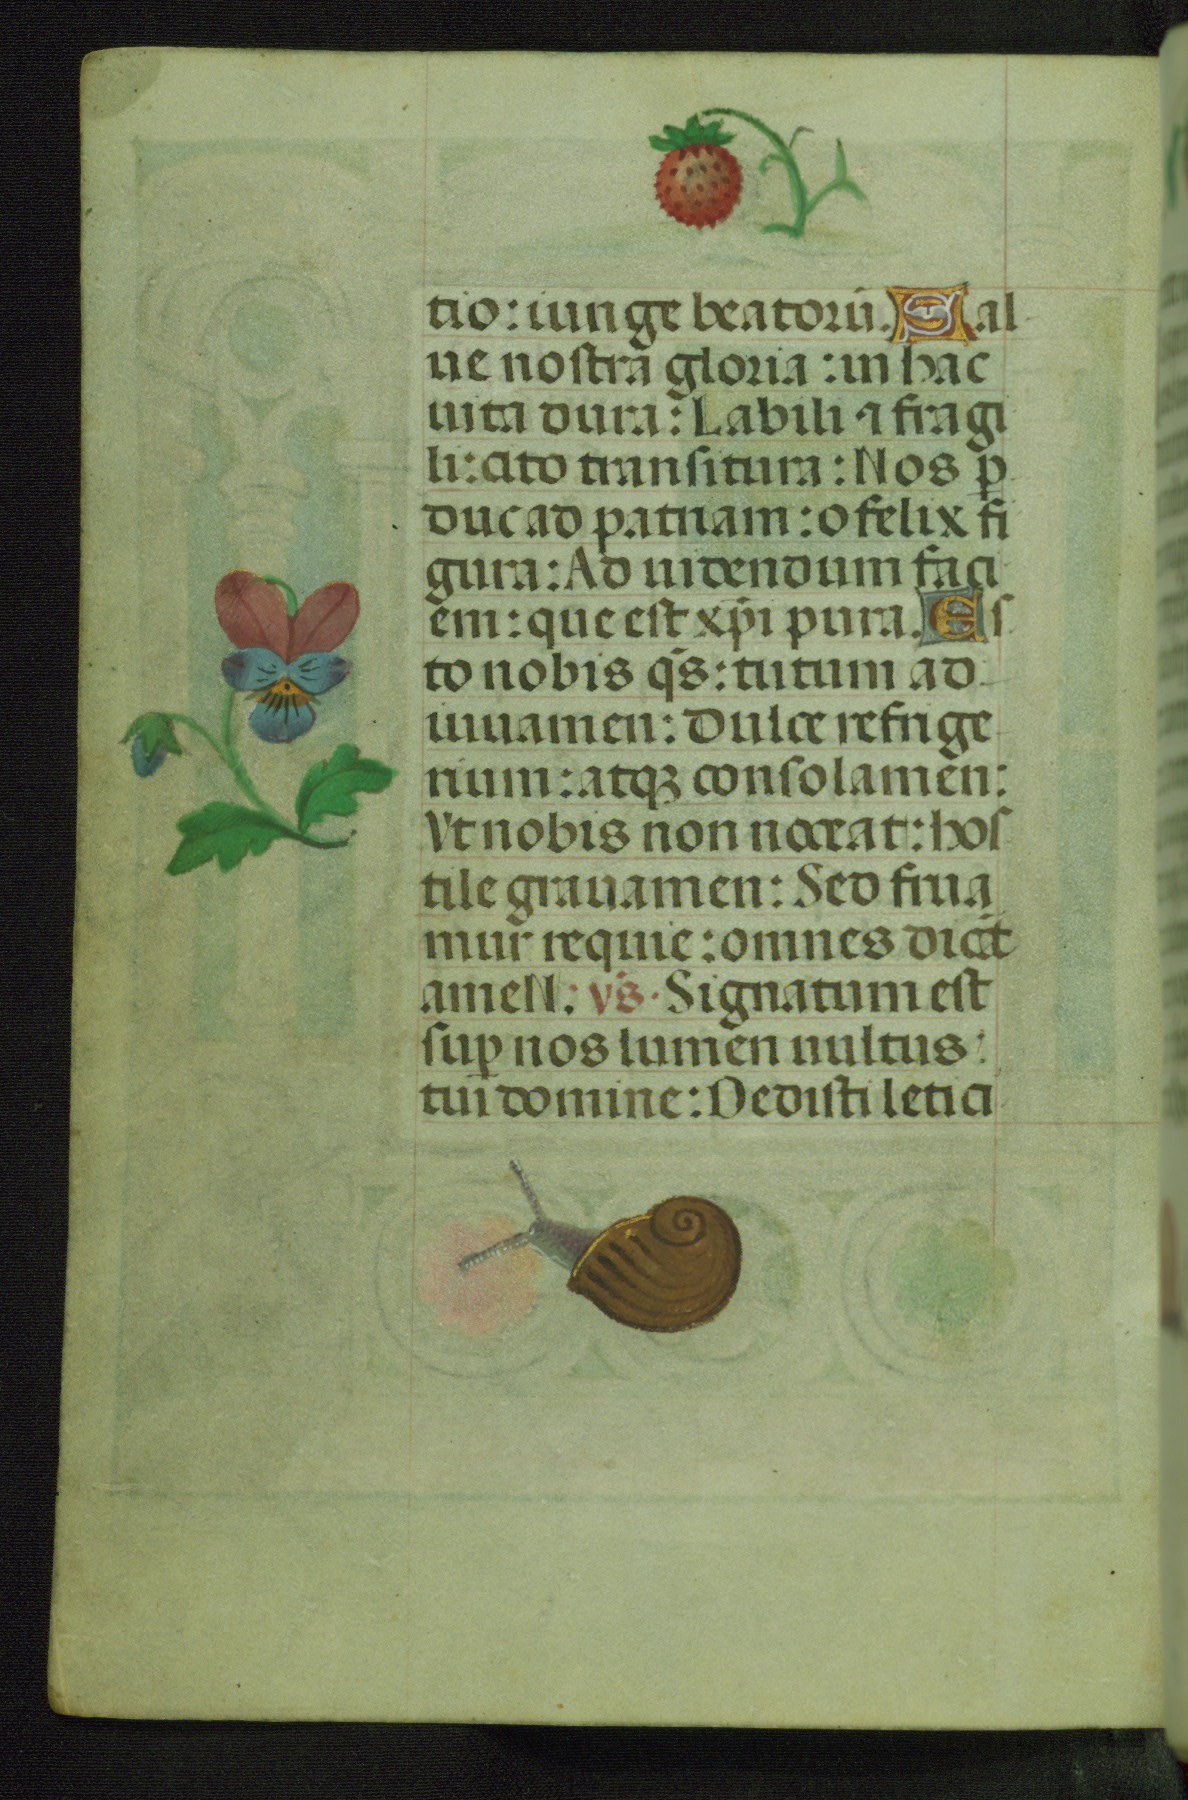 tio: iunge beatorū. Sal
ue nostrā gloria: in hac
uita dura: Labili ⁊ fragi
li: cito transitura: Nos ꝑ
duc ad patriam: o felix fi
gura: Ad uidendum faci
em: que est xp̄i pura. Es
to nobis q̄s: tutum ad
iuuamen: Dulce refrige
rium: atqꝫ consolamen:
Vt nobis non noceat: hos
tile grauamen: Sed frua
mur requie: omnes dicāt
ameN: vs̄. Signatum est
suꝑ nos lumen uultus:
tui domine: Dedisti leticı